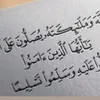 وَمَلَٰٓئِكَتَهُۥ يُصَلُّونَ عَلَى
يَٰٓأَيُّهَا ٱلَّذِينَ ءَامَنُوا۟
عَلَيْهِ وَسَلِّمُوا۟ تَسْلِيمًا